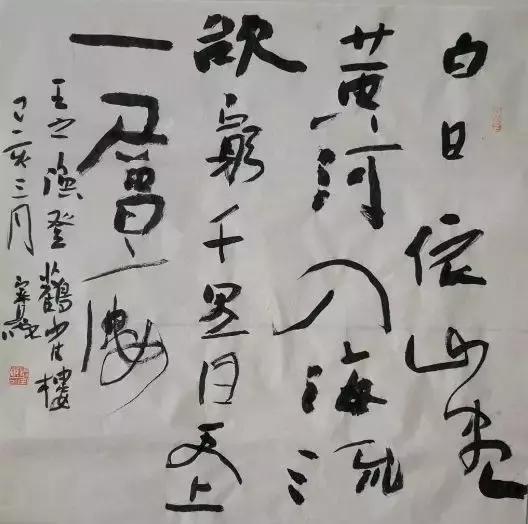 白日依山尽
黄河入海流
欲窮千里目更上
一層楼
王之渙登鸛雀樓
己亥三月